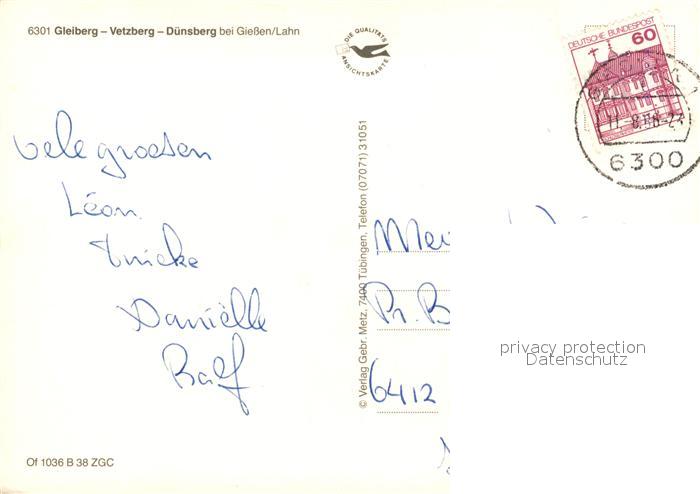 6301 Gleiberg – Vetzberg – Dünsberg bei Gießen/Lahn
DIE QUALITÄTS
ANSICHTSKARTE
DEUTSCHE BUNDESPOST
60
6300
vele groeten
Léon
Daniëlle
Ralf
© Verlag Gebr. Metz, 7400 Tübingen, Telefon (07071) 31051
Pr. B
6412
privacy protection
Datenschutz
Of 1036 B 38 ZGC